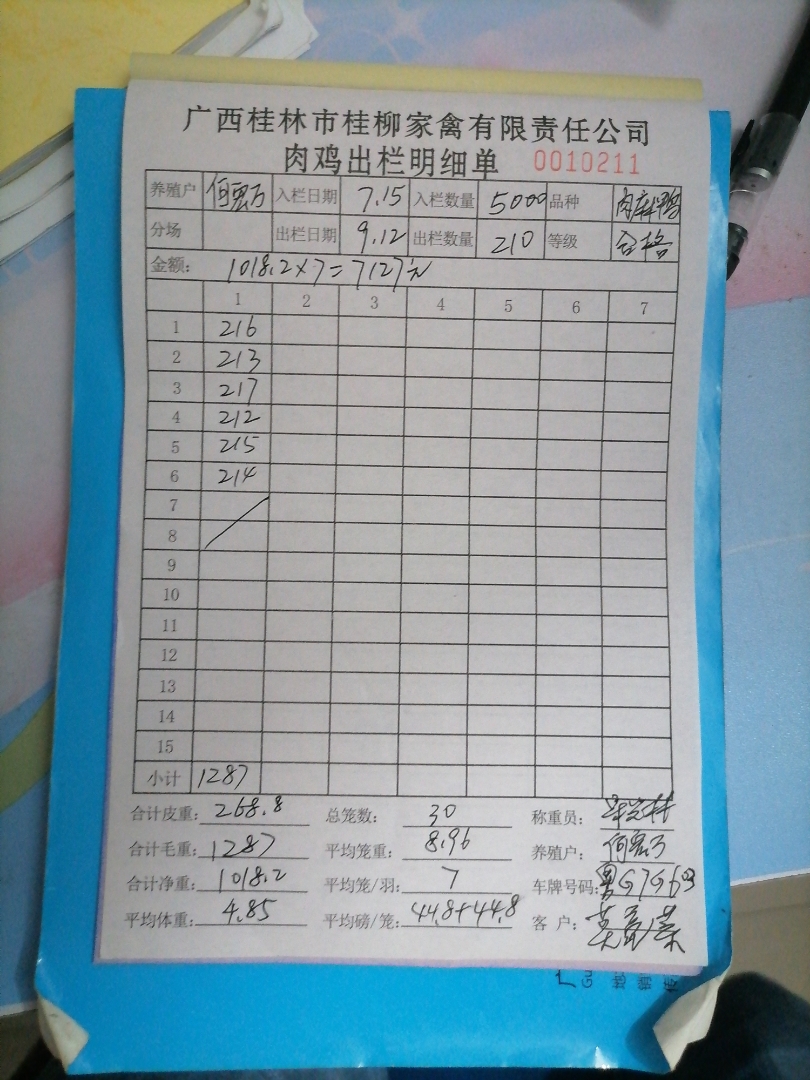 广西桂林市桂柳家禽有限责任公司
肉鸡出栏明细单 0010211
养殖户 入栏日期 7.15 入栏数量 5000 品种 肉麻鸭
分场 出栏日期 9.12 出栏数量 210 等级 合格
金额: 1018.2×7=7127元
1 2 3 4 5 6 7
1 216
2 213
3 217
4 212
5 215
6 214
7
8
9
10
11
12
13
14
15
小计 1287
合计皮重: 268.8 总笼数: 30 称重员:
合计毛重: 1287 平均笼重: 8.96 养殖户:
合计净重: 1018.2 平均笼/羽: 7 车牌号码:
平均体重: 4.85 平均磅/笼: 44.8+44.8 客 户: